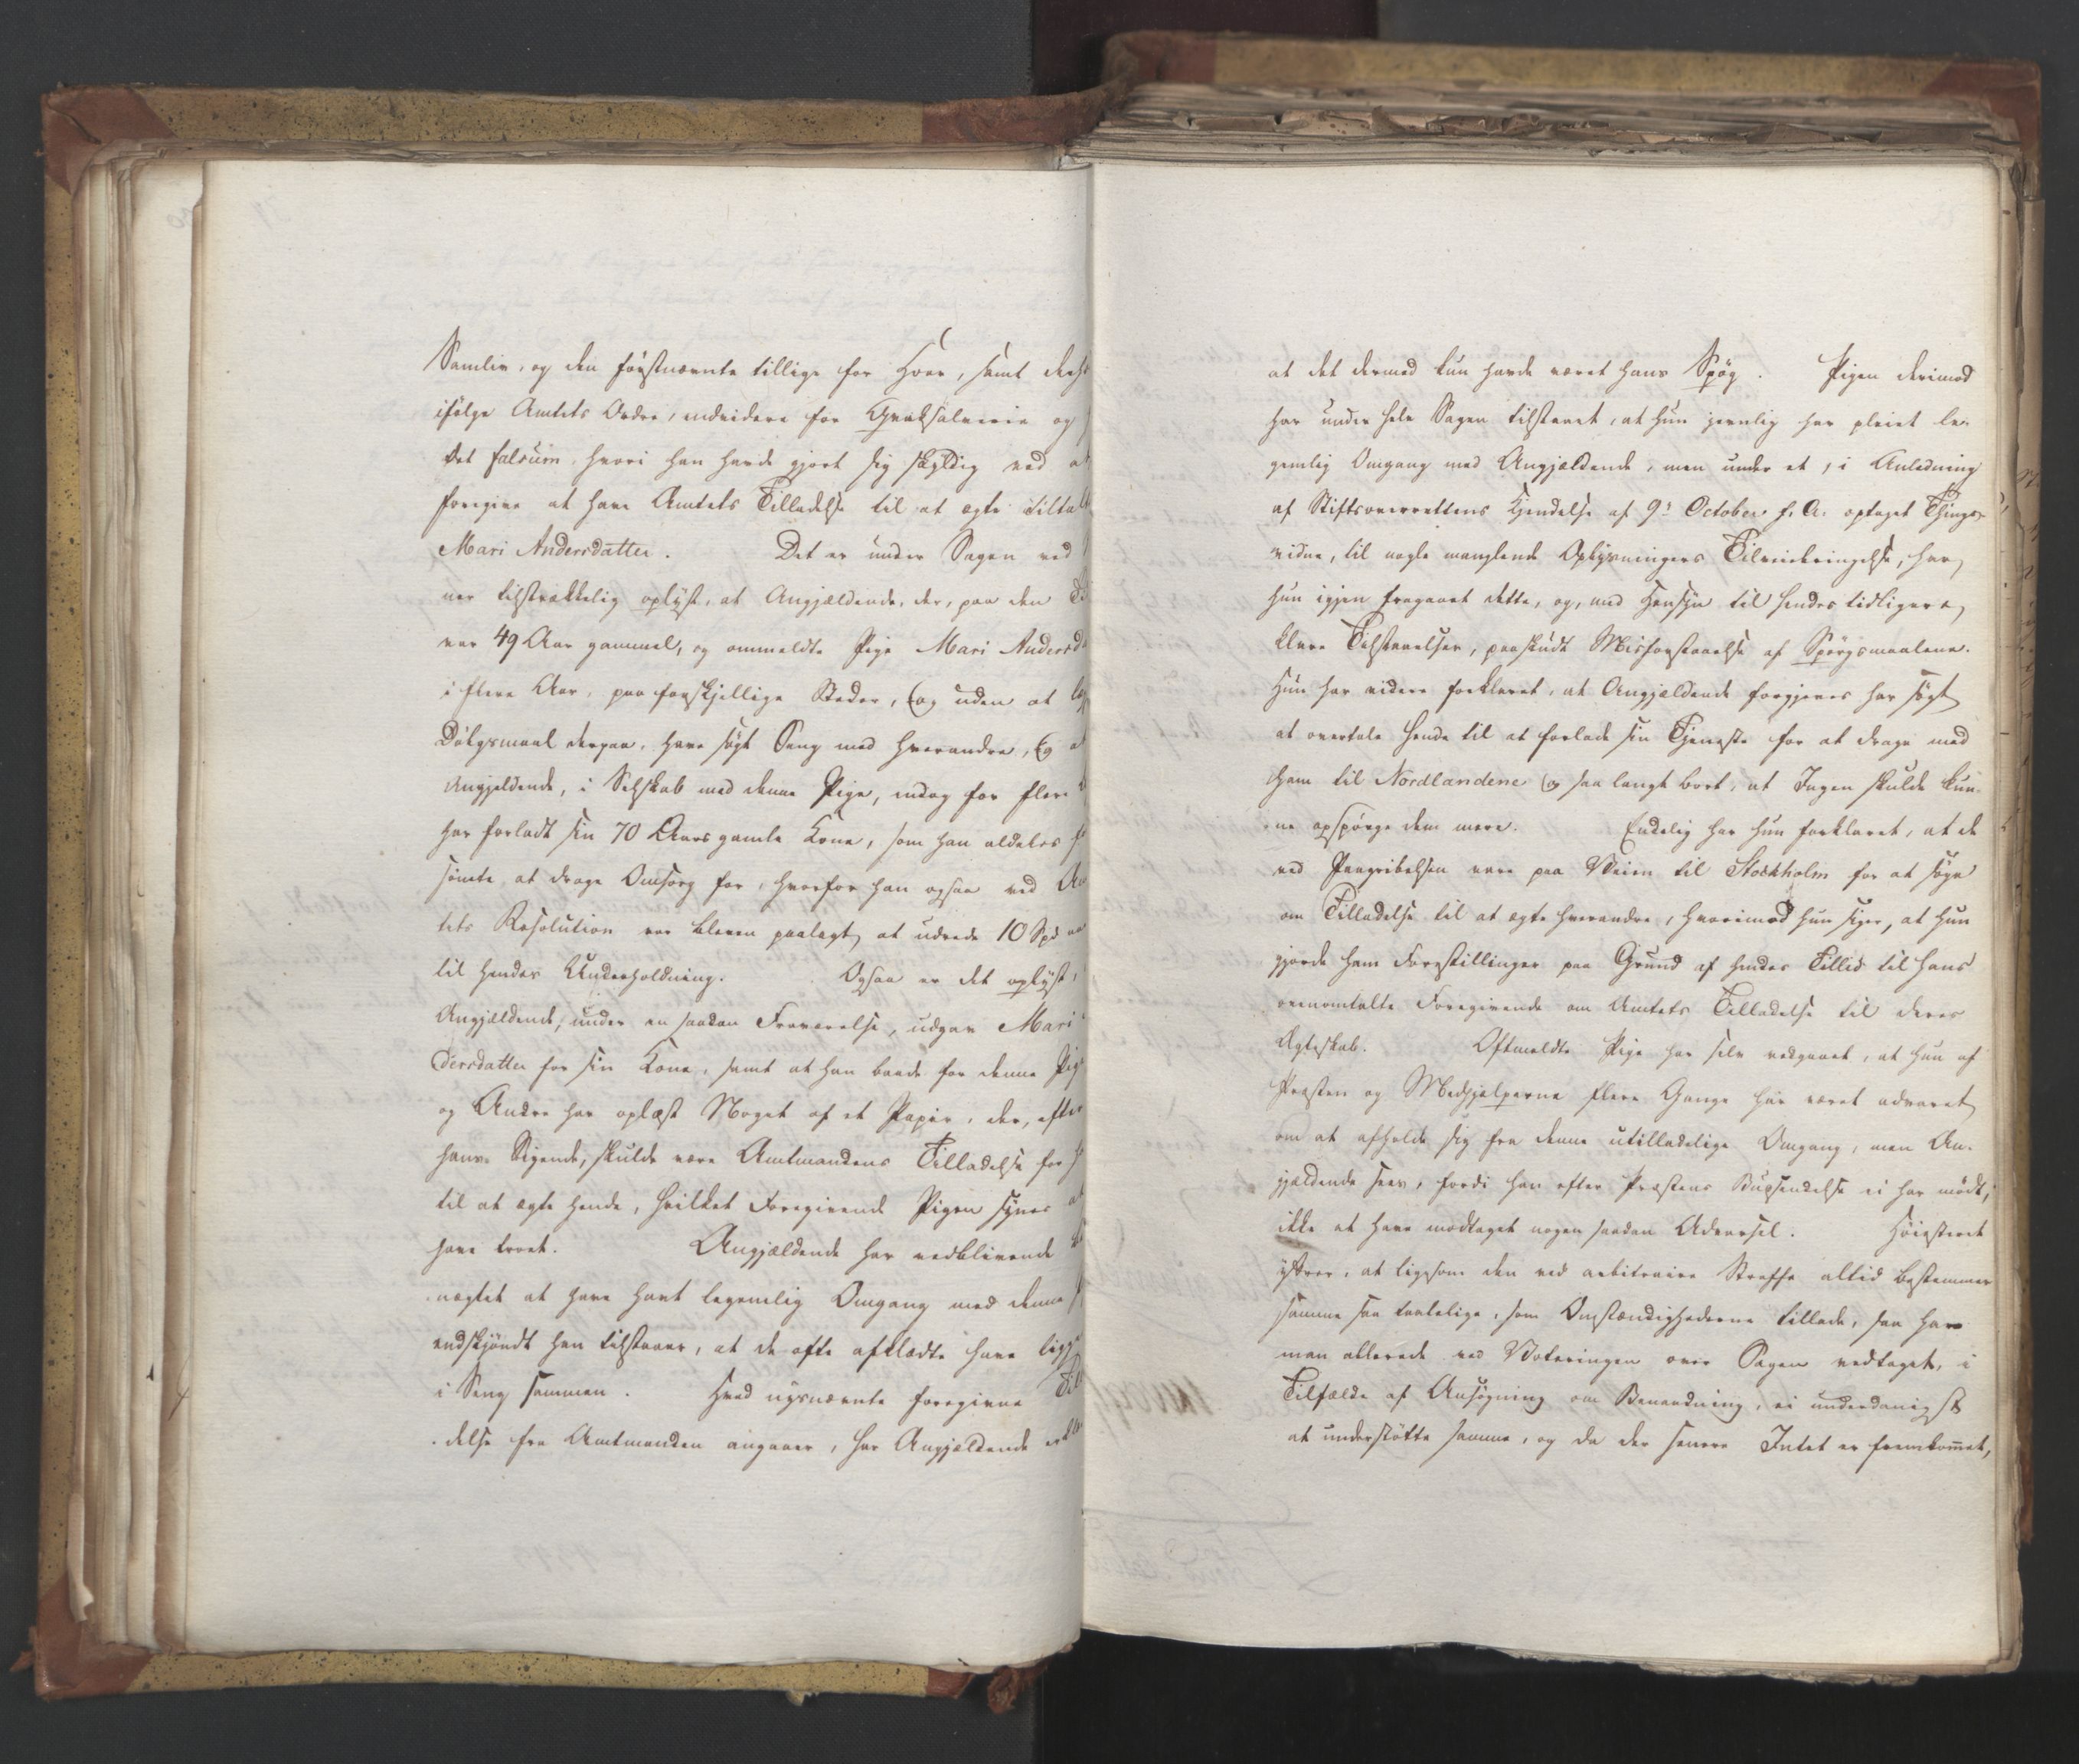 Samliv, og den førstnævnte tillige for Hoer, samt
ifølge Amtets Ordre, endvidere for Qvaksalverie og
det falsum, hvori han havde gjort sig skyldig ved at
foregive at have Amtets Tilladelse til at egte
Mari Andersdatter. Det er under Sagen ved
ner tilstrækkelig oplyst, at Angjældende, der, paa den
var 49 Aar gammel, og ommeldte Pige Mari Andersda
i flere Aar, paa forskjellige Steder, og uden at
Dølgsmaal derpaa, have søgt Seng med hverandre, og at
Angjeldende, i Selskab med denne Pige, endog for flere
har forladt sin 70 Aars gamle Kone, som han aldeles
sømte at drage Omsorg for, hvorfor han ogsaa ved
tets Resolution var bleven paalagt at udrede 10 Spd
til hendes Underholdning. Ogsaa er det oplyst,
Angjældende, under en saadan Fraværelse, udgav Mari
dersdatter for sin Kone, samt at han baade for denne Pige
og Andre har oplæst Noget af et Papir, der, efter
hans Sigende, skulde være Amtmandens Tilladelse for
til at egte hende, hvilket Foregivende Pigen synes at
have troet. Angjældende har vedblivende
nægtet at have havt legemlig Omgang med denne
endskjøndt han tilstaaer, at de ofte afklædte have
i Seng sammen. Hvad nysnævnte foregivne
delse fra Amtmanden angaaer, har Angjældende
at det dermed kun havde været hans Spøg. Pigen derimod
har under hele Sagen tilstaaet, at hun jevnlig har pleiet le-
gemlig Omgang med Angjældende, men under et, i Anledning
af Stiftsoverrettens Kjendelse af 9de October f. A. optaget Things-
vidne, til nogle manglende Oplysningers Tilveiebringelse, har
hun igjen fragaaet dette, og, med Hensyn til hendes tidligere
klare Tilstaaelser, paaskudt Misforstaaelse af Spørgsmaalene.
Hun har videre forklaret, at Angjældende forgjeves har søgt
at overtale hende til at forlade sin Tjeneste for at drage med
ham til Nordlandene og saa langt bort, at Ingen skulde kun-
ne opspørge dem mere. Endelig har hun forklaret, at de
ved Paagribelsen vare paa Veien til Stockholm for at søge
om Tilladelse til at egte hverandre, hvorimod hun siger, at hun
gjorde ham Forestillinger paa Grund af hendes Tillid til hans
ovenomtalte Foregivende om Amtets Tilladelse til deres
Egteskab. Oftmeldte Pige har selv vedgaaet, at hun af
Præsten og Medhjelperne flere Gange har været advaret
om at afholde sig fra denne utilladelige Omgang, men An-
gjældende selv, fordi han efter Præstens Budsendelse ei har mødt,
ikke at have modtaget nogen saadan Advarsel. Høiesteret
yttrer, at ligesom den ved arbitraire Straffe altid bestemmer
samme saa taalelige, som Omstændighederne tillade, saa har
man allerede ved Voteringen over Sagen vedtaget, i
Tilfælde af Ansøgning om Benaadning, ei underdanigst
at understøtte samme, og da der senere Intet er fremkommet,